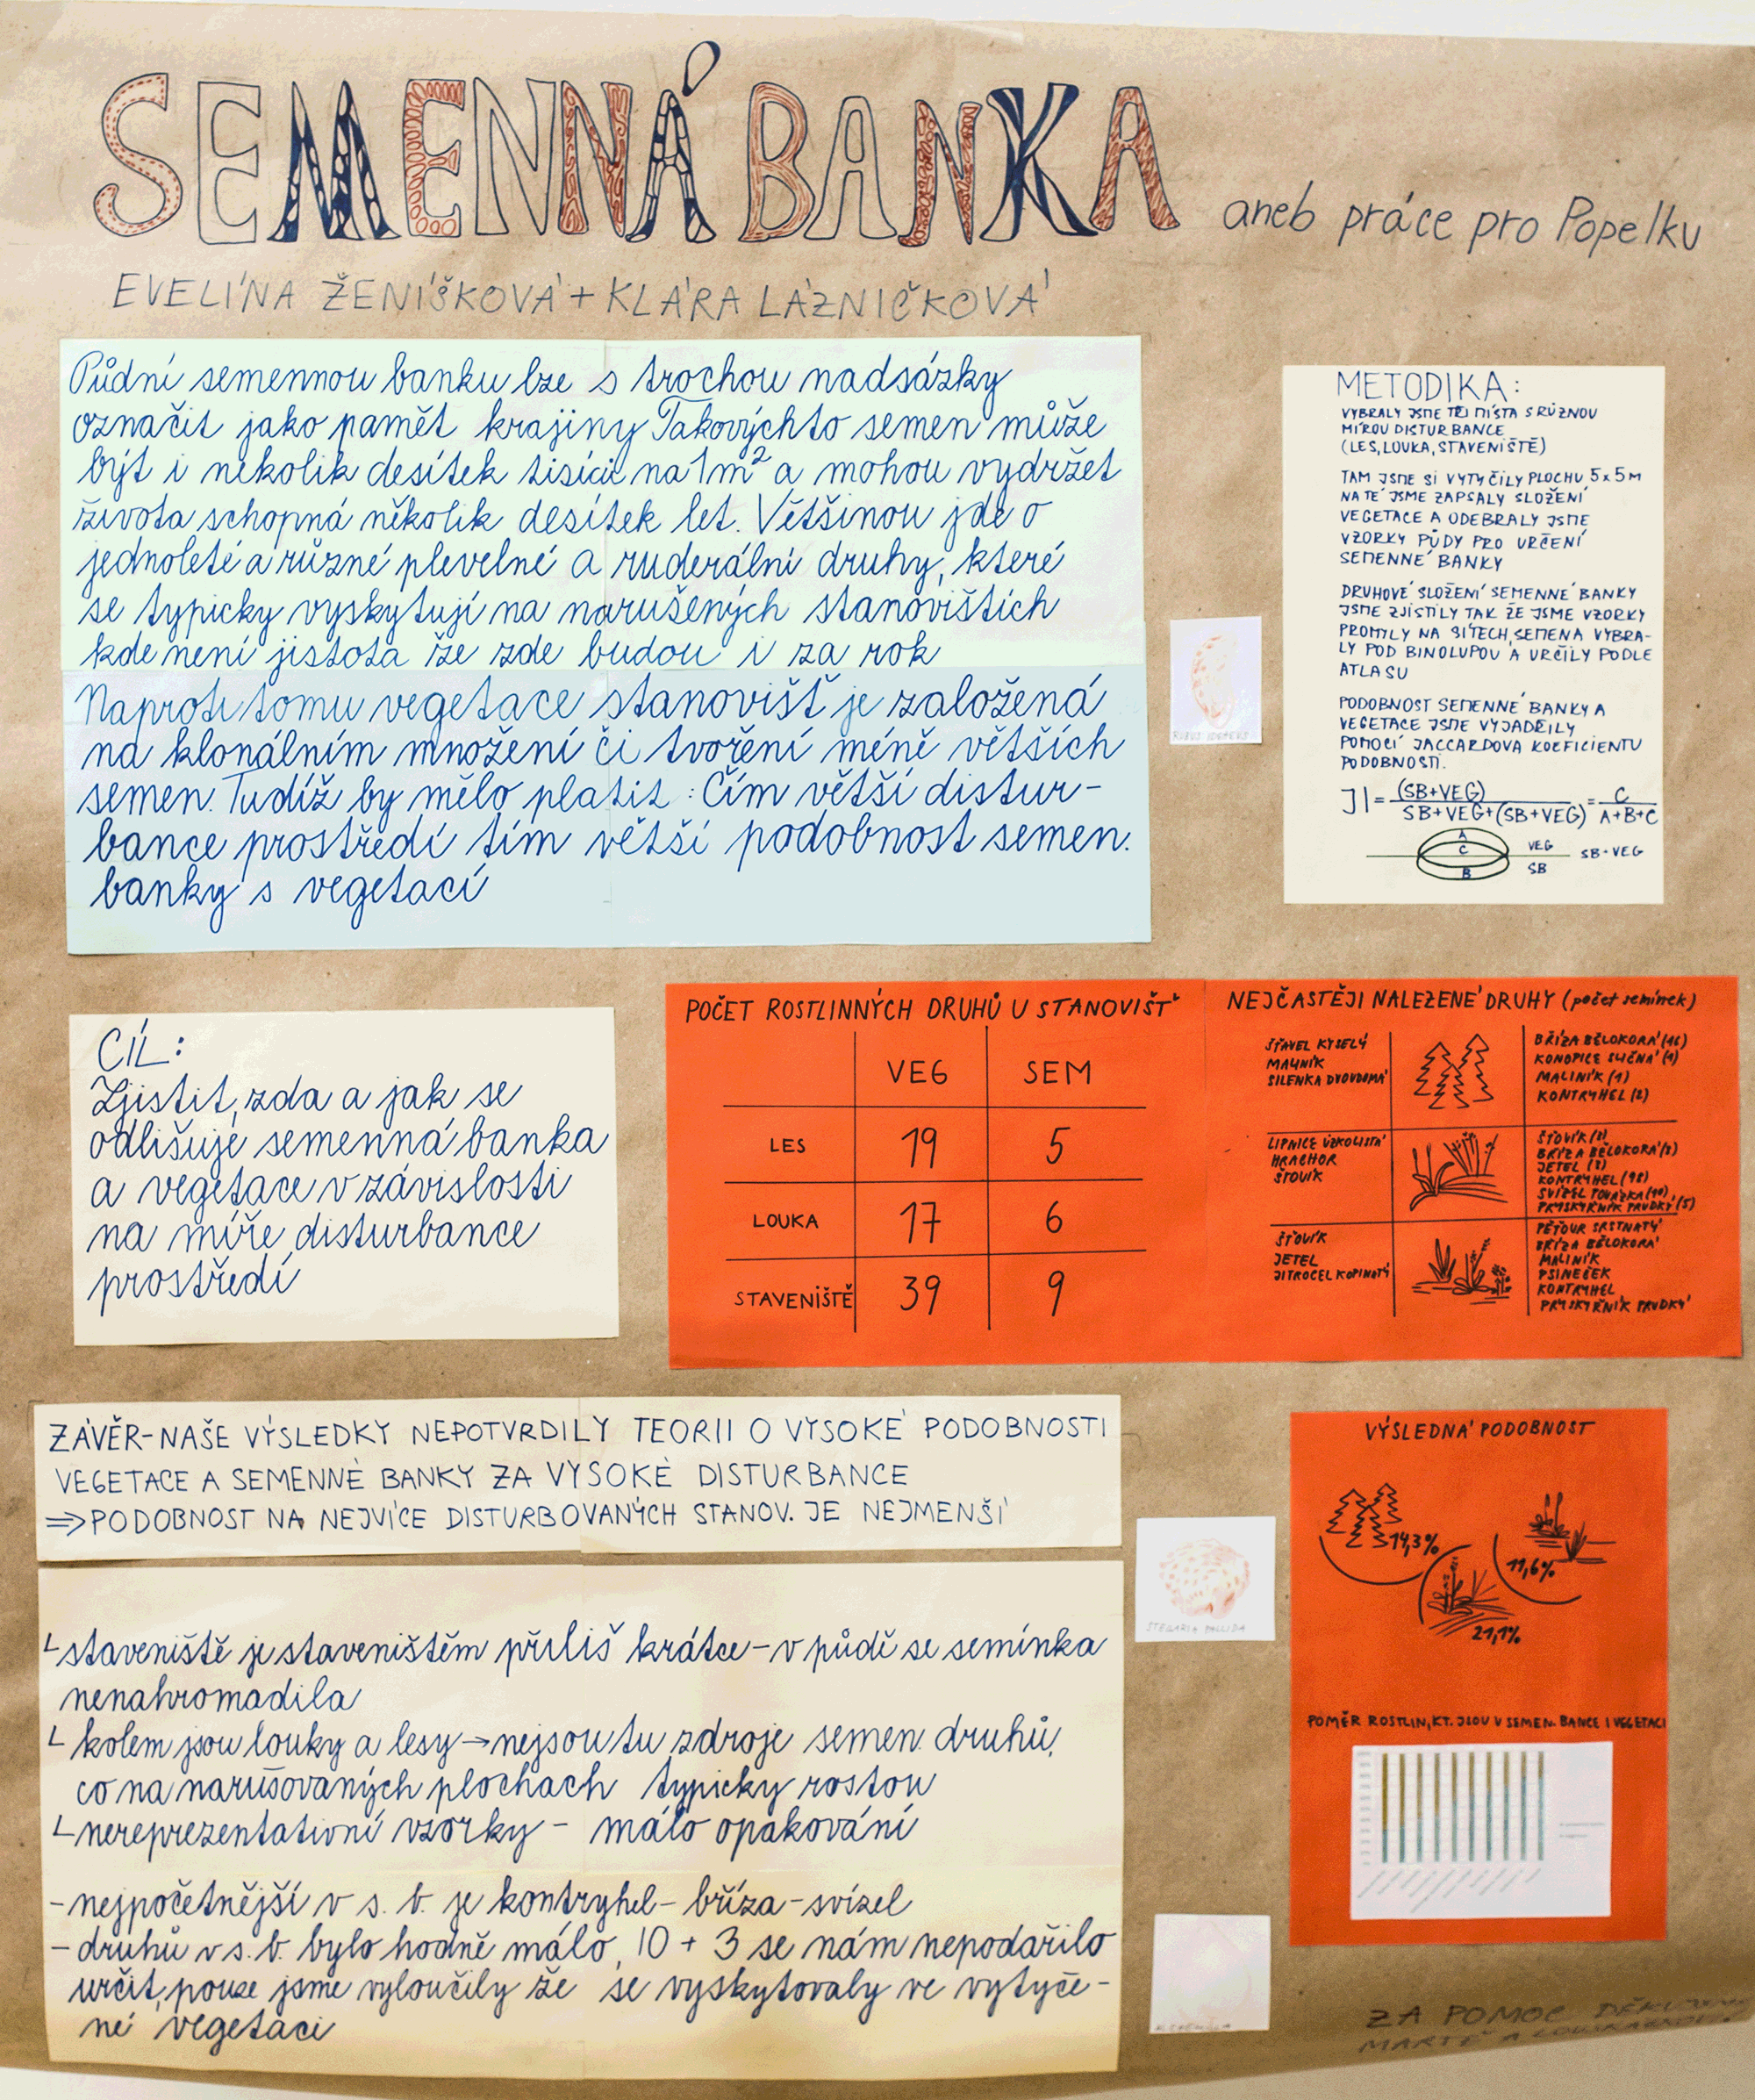 SEMENNÁ BANKA aneb práce pro Popelku
EVELÍNA ŽENÍŠKOVÁ + KLÁRA LÁZNIČKOVÁ
Půdní semennou banku lze s trochou nadsázky
označit jako pamět krajiny Takovýchto semen může
být i několik desítek tisíc na 1m² a mohou vydržet
života schopná několik desítek let. Většinou jde o
jednoleté a různé plevelné a ruderální druhy, které
se typicky vyskytují na narušených stanovištích
kde není jistota že zde budou i za rok
Naproti tomu vegetace stanovišť je založená
na klonálním množení či tvoření méně větších
semen. Tudíž by mělo platit : Čím větší distur-
bance prostředí tím větší podobnost semen.
banky s vegetací
METODIKA:
VYBRALY JSME TŘI MÍSTA S RŮZNOU
MÍROU DISTURBANCE
(LES, LOUKA, STAVENIŠTĚ)
TAM JSME SI VYTYČILY PLOCHU 5x5M
NA TÉ JSME ZAPSALY SLOŽENÍ
VEGETACE A ODEBRALY JSME
VZORKY PŮDY PRO URČENÍ
SEMENNÉ BANKY
DRUHOVÉ SLOŽENÍ SEMENNÉ BANKY
JSME ZJISTILY TAK ŽE JSME VZORKY
PROMYLY NA SÍTECH, SEMENA VYBRA-
LY POD BINOLUPOU A URČILY PODLE
ATLASU
PODOBNOST SEMENNÉ BANKY A
VEGETACE JSME VYJADŘILY
POMOCÍ JACCARDOVA KOEFICIENTU
PODOBNOSTI.
JI = (SB+VEG) / SB+VEG+(SB+VEG) = C / A+B+C
A
C
B
VEG
SB
SB+VEG
CÍL:
Zjistit, zda a jak se
odlišuje semenná banka
a vegetace v závislosti
na míře disturbance
prostředí
POČET ROSTLINNÝCH DRUHŮ U STANOVIŠŤ
VEG SEM
LES 19 5
LOUKA 17 6
STAVENIŠTĚ 39 9
NEJČASTĚJI NALEZENÉ DRUHY (počet semínek)
ŠŤAVEL KYSELÝ
MALINÍK
SILENKA DVOUDOMÁ
BŘÍZA BĚLOKORÁ (16)
KONOPICE SLIČNÁ (1)
MALINÍK (1)
KONTRYHEL (2)
LIPNICE ÚZKOLISTÁ
HRACHOR
ŠŤOVÍK
ŠŤOVÍK
BŘÍZA BĚLOKORÁ
JETEL
KONTRYHEL (98)
SVÍZEL POVÁZKA (10)
PRYSKYŘNÍK PRUDKÝ (5)
ŠŤOVÍK
JETEL
JITROCEL KOPINATÝ
PĚŤOUR SRSTNATÝ
BŘÍZA BĚLOKORÁ
MALINÍK
PSINEČEK
KONTRYHEL
PRYSKYŘNÍK PRUDKÝ
ZÁVĚR-NAŠE VÝSLEDKY NEPOTVRDILY TEORII O VYSOKÉ PODOBNOSTI
VEGETACE A SEMENNÉ BANKY ZA VYSOKÉ DISTURBANCE
⇒ PODOBNOST NA NEJVÍCE DISTURBOVANÝCH STANOV. JE NEJMENŠÍ
staveniště je staveništěm příliš krátce – v půdě se semínka
nenahromadila
kolem jsou louky a lesy → nejsou tu zdroje semen. druhů,
co na narušovaných plochach typicky rostou
nereprezentativní vzorky – málo opakování
- nejpočetnější v s. b. je kontryhel – bříza – svízel
- druhů v s. b. bylo hodně málo, 10 + 3 se nám nepodařilo
určit, pouze jsme vyloučily že se vyskytovaly ve vytyče-
né vegetaci
RUBUS IDAEUS
STELLARIA PALLIDA
ALCHEMILLA
VÝSLEDNÁ PODOBNOST
14,3%
11,6%
21,1%
POMĚR ROSTLIN, KT. JSOU V SEMEN. BANCE I VEGETACI
ZA POMOC DĚKUJEME
MARTĚ A